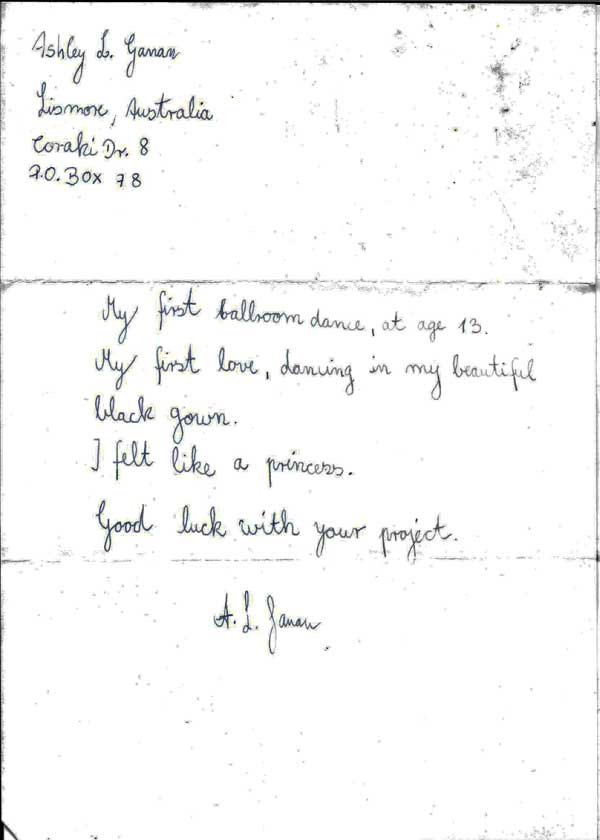 Ashley L. Ganan
Lismore, Australia
Coraki Dr. 8
P.O. Box 78
My first ballroom dance, at age 13.
My first love, dancing in my beautiful
black gown.
I felt like a princess.
Good luck with your project.
A. L. Ganan